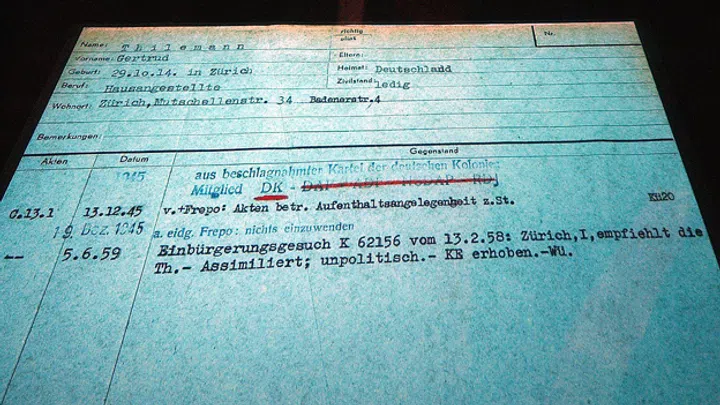 Name: Thilemann richtig alias Nr.
Vorname: Gertrud Eltern:
Geburt: 29.10.14. in Zürich Heimat: Deutschland
Beruf: Hausangestellte Zivilstand: ledig
Wohnort: Zürich, Mutschellenstr. 34 Badenerstr.4
Bemerkungen:
Akten Datum Gegenstand
1945 aus beschlagnahmter Kartei der deutschen Kolonie:
Mitglied DK - DAF - NSDAP - RDJ
C.13.1 13.12.45 v.+Frepo: Akten betr. Aufenthaltsangelegenheit z.St. KH20
19. Dez. 1945 a. eidg. Frepo: nichts einzuwenden
-- 5.6.59 Einbürgerungsgesuch K 62156 vom 13.2.58: Zürich,I,empfiehlt die
Th.- Assimiliert; unpolitisch.- KE erhoben.-Wü.